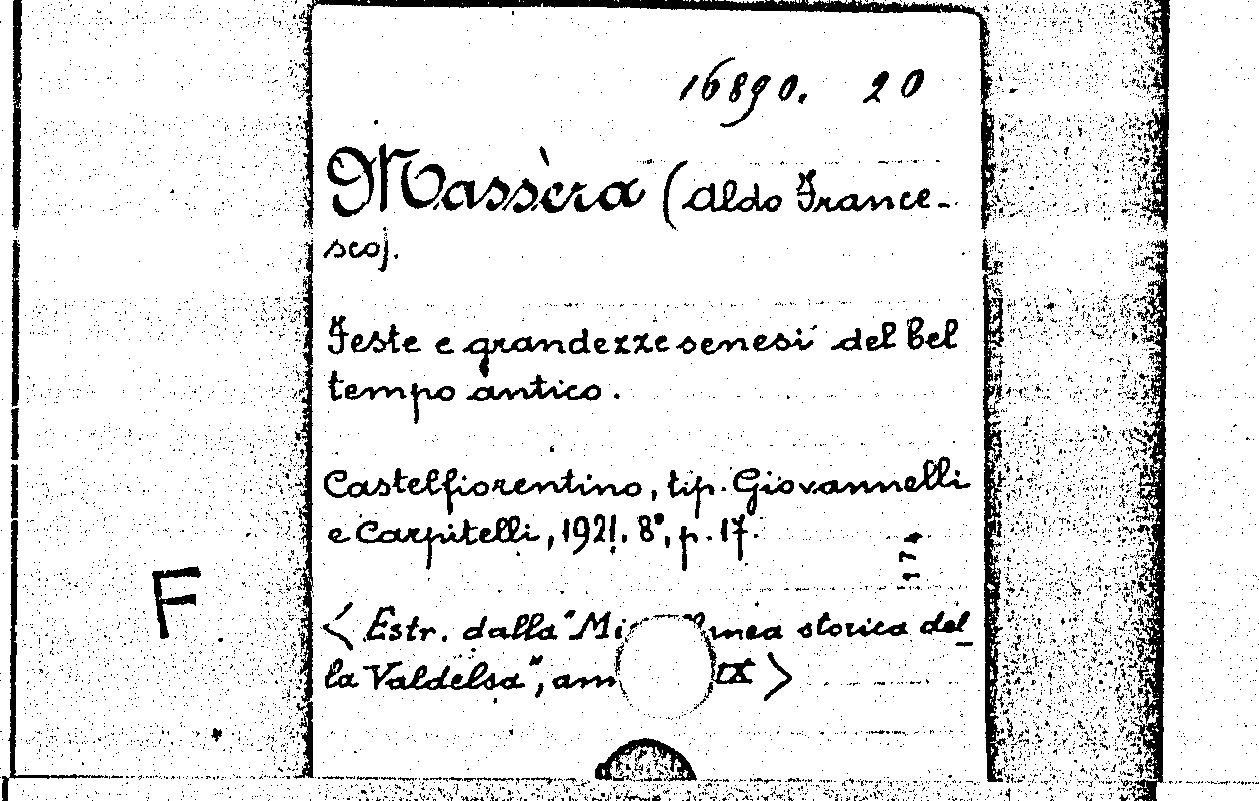 16890. 20
Massèra (Aldo France-
sco).
Feste e grandezze senesi del bel
tempo antico.
Castelfiorentino, tip. Giovannelli
e Carpitelli, 1921. 8°, p. 17.
174
F
< Estr. dalla "Mi lanea storica del
la Valdelsa", IX >